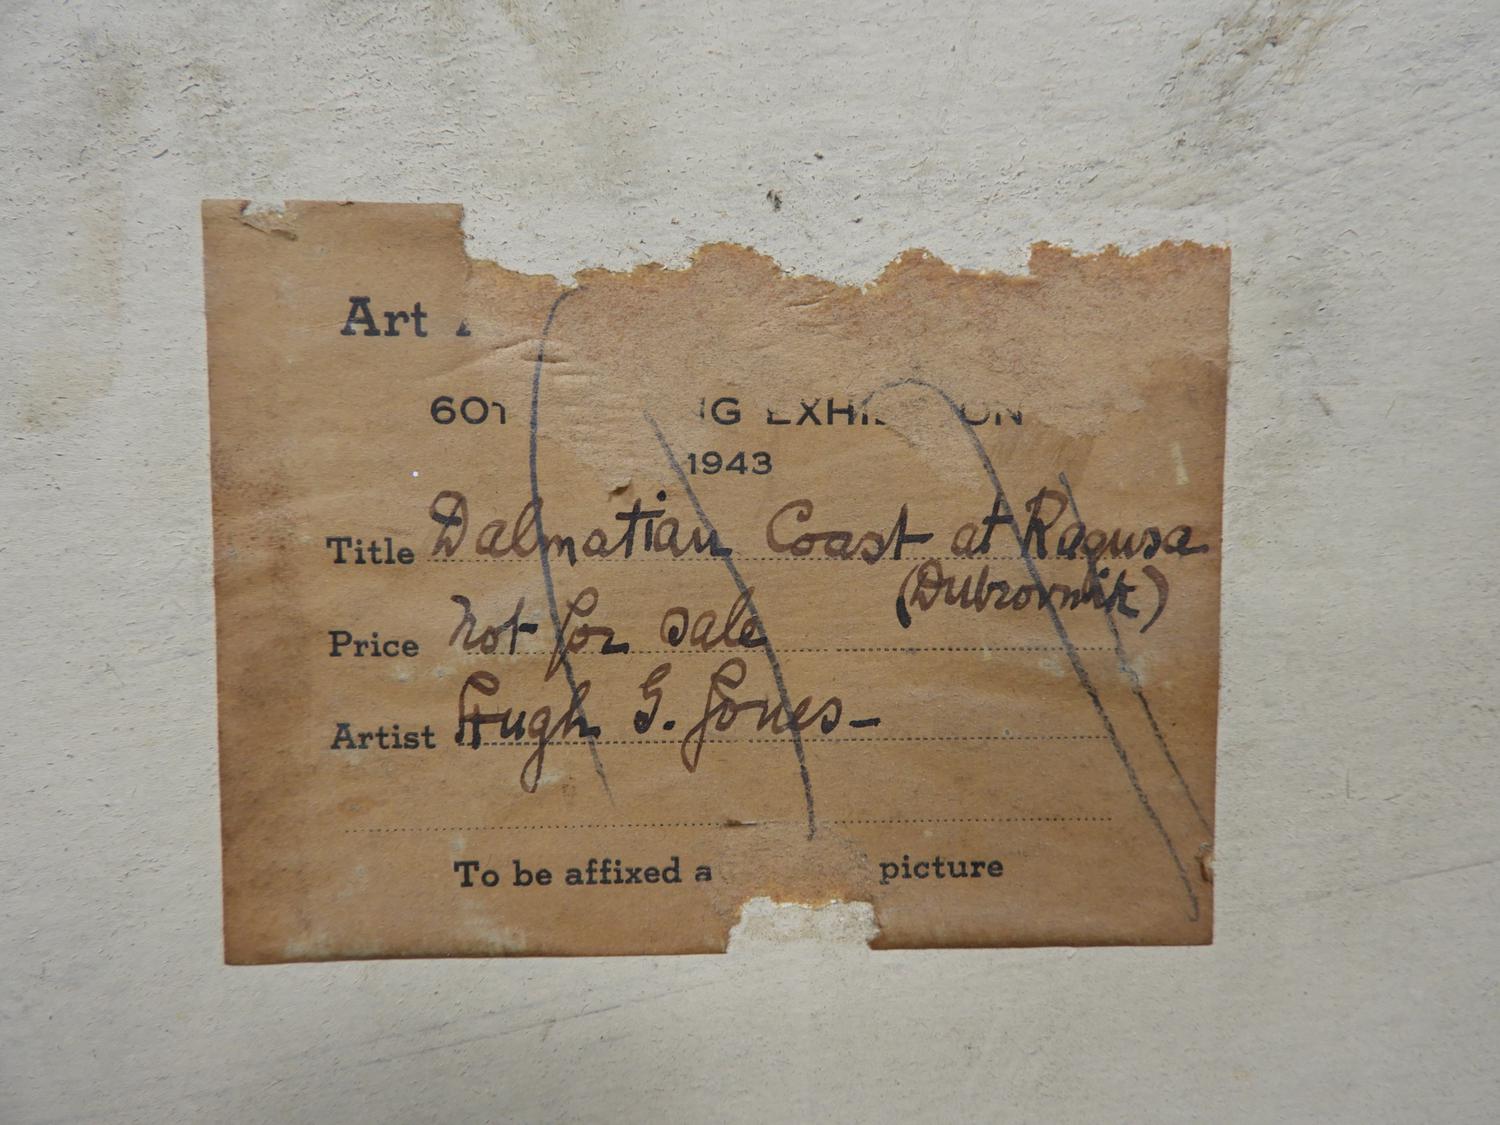 Art
EXHI
1943
Title Dalmatian Coast at Ragusa
(Dubrovnik)
Price not for sale
Artist Hugh G. Jones-
To be affixed a picture